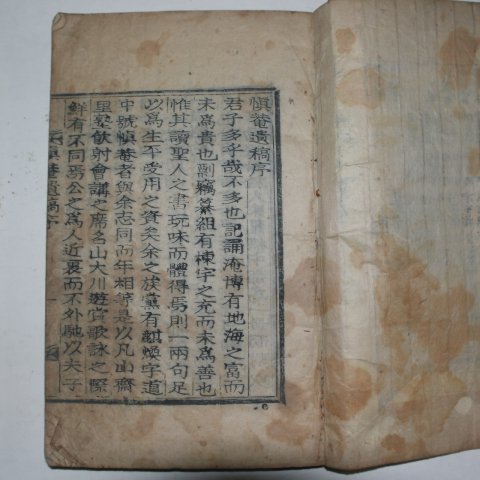 愼菴遺稿序
君子多乎哉不多也記誦淹博有地海之富而
未爲貴也剽竊纂組有棟宇之充而未爲善也
惟其讀聖人之書玩味而體得焉則一兩句足
以爲生平受用之資矣余之族黨有麒煥字道
中號愼菴者與余志同而年相等是以凡山齋
里塾飮射會講之席名山大川遊賞歌詠之際
鮮有不同焉公之爲人近裏而不外馳以夫子
愼菴遺稿序